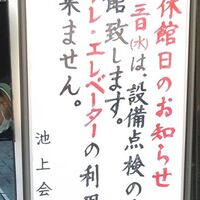 休館日のお知らせ
三日(水)は、設備点検の
館致します。
レ・エレベーターの利用
来ません。
池上会